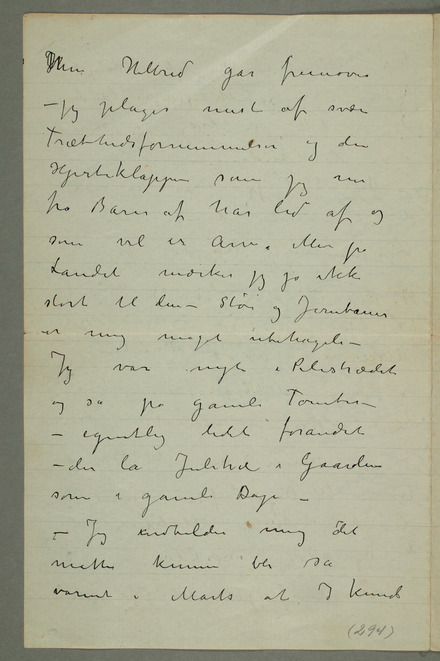 Min Helbred går fremover
– jeg plages mest af svære
Træthedsfornemmelser og den
Hjerteklappen som jeg nu
fra Barn af har lid af og
som vel er Arv. Men på
Landet mærker jeg jo ikke
stort til den – Støi og Jernbaner
er mig meget ubehagel –
Jeg var myli i Pilestrædet
og så på gamle Tomter –
– egentlig lidet forandret
– der lå Juletræ i Gaarden
som i gamle Dage –
– Jeg indbilder mig det
måtte kunne bli så
varmt i Marts at I kunde
(294)